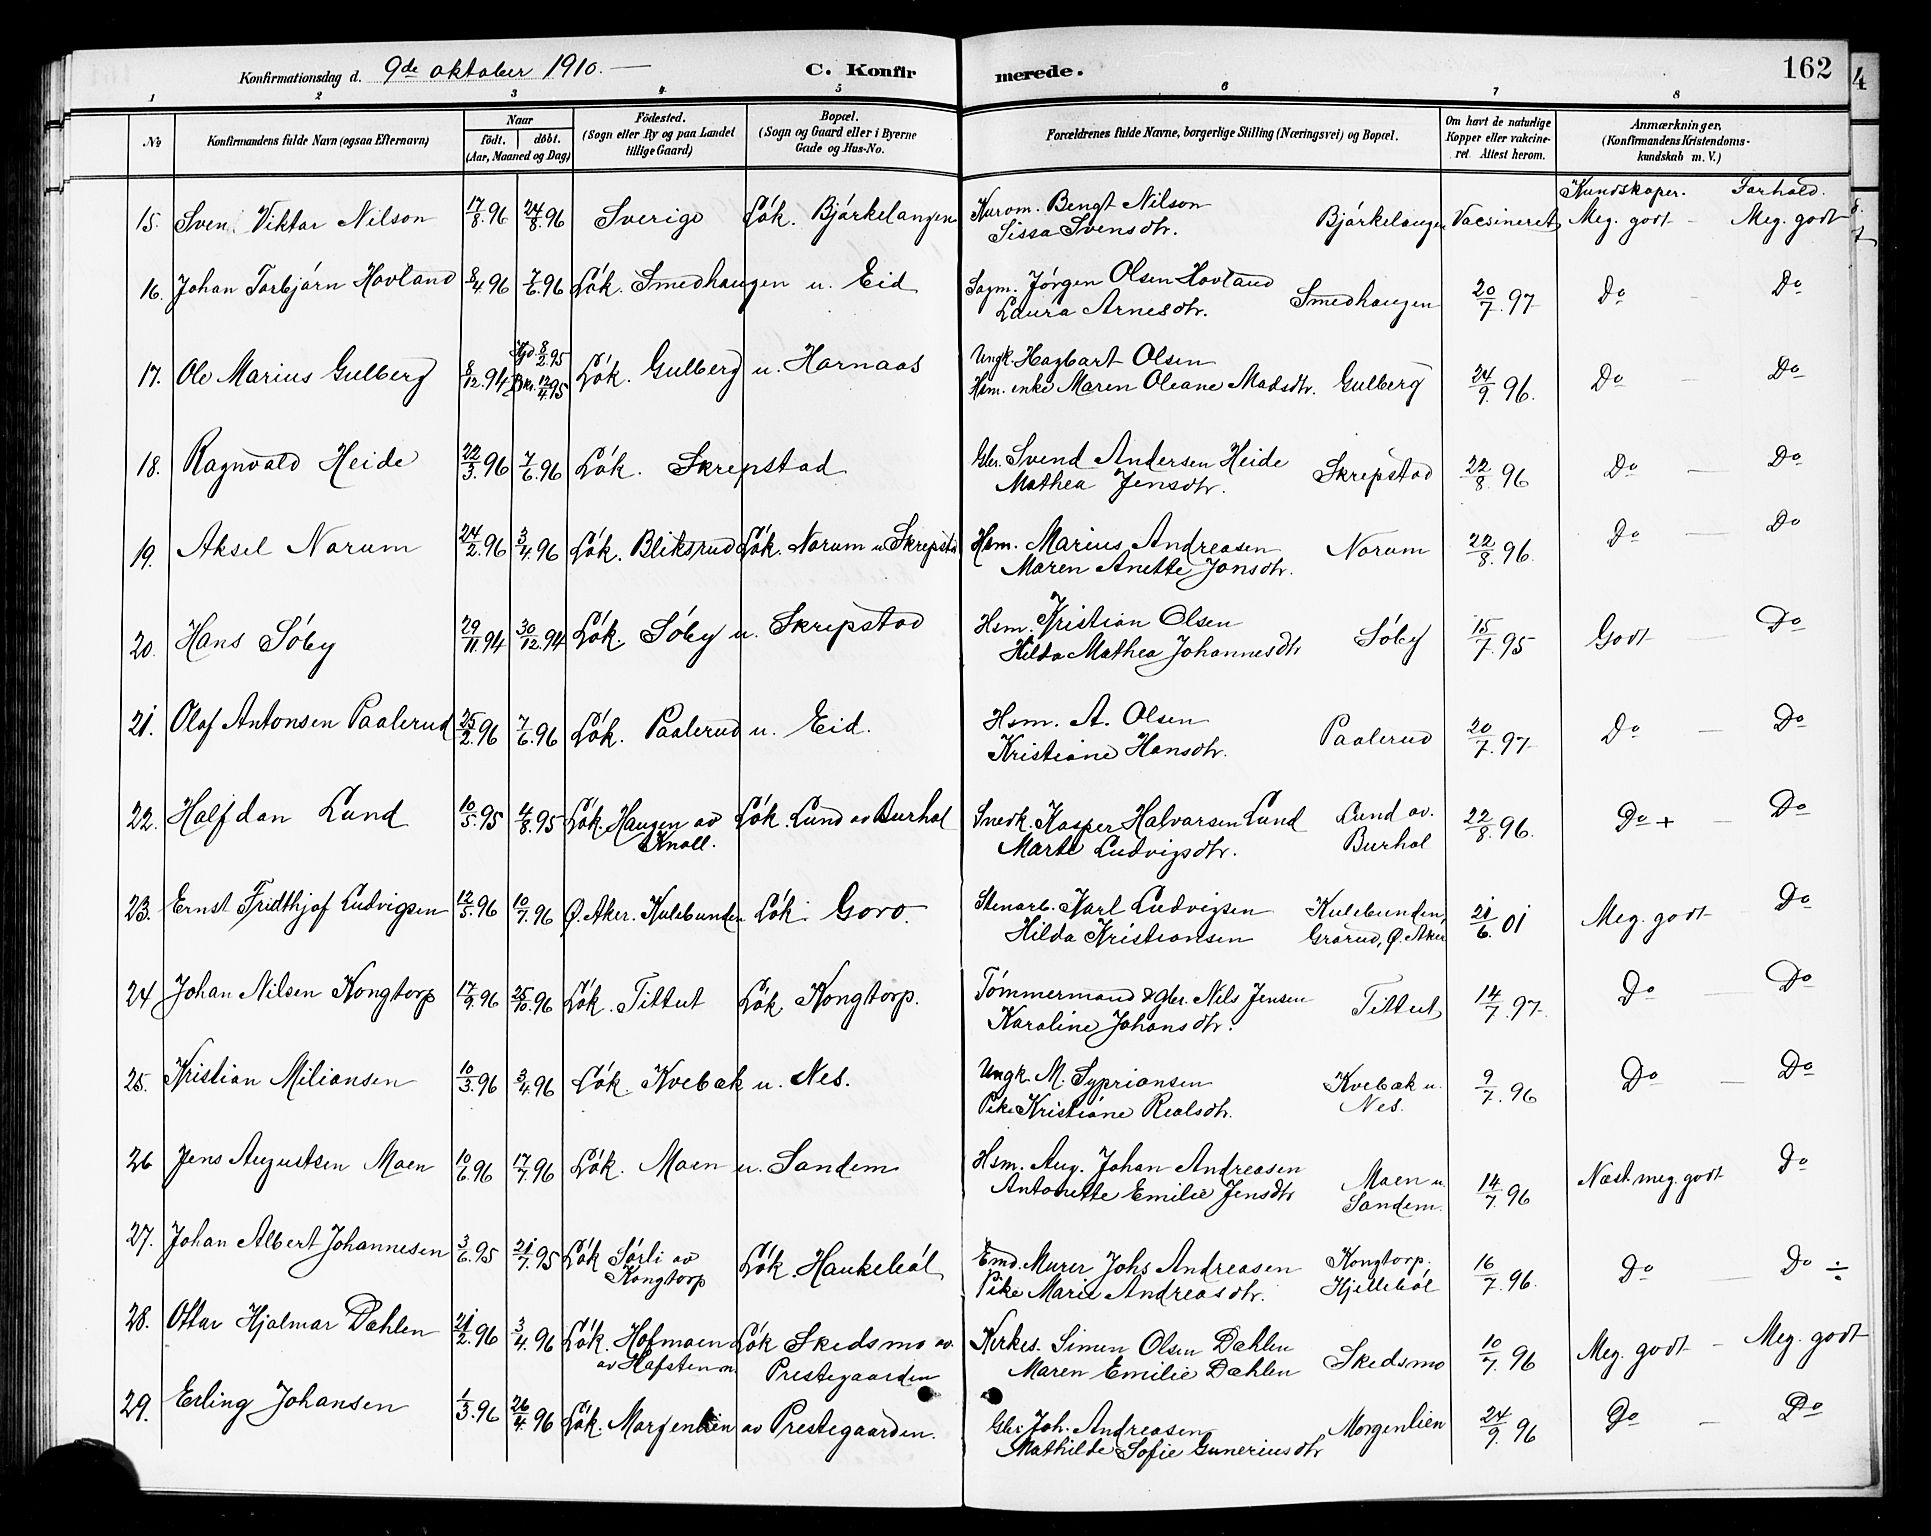 Konfirmationsdag d. 9de oktober 1910. — C. Konfirmerede. 162
1 2 3 4 5 6 7 8
No
Konfirmandens fulde Navn (ogsaa Efternavn)
Naar
født. døbt.
(Aar, Maaned og Dag)
Fødested.
(Sogn eller By og paa Landet
tillige Gaard)
Bopæl.
(Sogn og Gaard eller i Byerne
Gade og Hus-No.
Forældrenes fulde Navne, borgerlige Stilling (Næringsvei) og Bopæl.
Om havt de naturlige
Kopper eller vakcine-
ret. Attest herom.
Anmærkninger.
(Konfirmandens Kristendoms-
kundskab m. V.)
Kundskaper. Forhold.
15. Sven Viktor Nilson 17/8.96 24/8.96 Sverige Løk. Bjørkelangen Bengt Nilson
Sissa Svensdtr. Bjørkelangen Vacsineret Meg. godt — Meg. godt
16. Johan Torbjørn Hovland 8/4.96 7/6.96 Løk. Smedhaugen u. Eid Sagm. Jørgen Olsen Hovland
Laura Arnesdtr. Smedhaugen 20/7.97 Do — Do
17. Ole Marius Gulberg 8/12.94 Hjd. 8/2.95
Bkr. 12/4.95 Løk. Gulberg u. Harnaas Ungk. Hagbart Olsen
Hsm. enke Maren Oleane Madsdtr. Gulberg 24/9.96. Do — Do
18. Ragnvald Heide 22/3.96 7/6.96 Løk. Skrepstad Gbr. Svend Andersen Heide
Mathea Jensdtr. Skrepstad 22/8.96 Do — Do
19. Aksel Norum 24/2.96 3/4.96 Løk. Bliksrud Løk. Norum u. Skrepstd Hsm. Marius Andreasen
Maren Anette Jonsdtr. Norum 22/8.96. Do — Do
20. Hans Søby 29/11.94 30/12.94 Løk. Søby u. Skrepstad Hsm. Kristian Olsen
Hilda Mathea Johannesdtr Søby 15/7.95 Godt — Do
21. Olaf Antonsen Paalerud 25/2.96 7/6.96 Løk. Paalerud u. Eid. Hsm. A. Olsen
Kristiane Hansdtr. Paalerud 20/7.97 Do — Do
22. Halfdan Lund 10/5.95 4/8.95 Løk. Haugen av
Knoll. Løk. Lund av Burhol Snedk. Kasper Halvorsen Lund
Marte Ludvigsdtr. Lund av.
Burhol 22/8.96. Do + — Do
23. Ernst Fridthjof Ludvigsen 12/5.96 10/7.96 Ø. Aker. Kulebunden Løk. Goro. Stenarb. Karl Ludvigsen
Hilda Kristiansen Kulebunden,
Grorud, Ø. Aker 21/6.01 Meg. godt Do
24 Johan Nilsen Kongtorp 17/9.96 25/10.96 Løk. Tittut Løk. Kongtorp. Tømmermand & gbr. Nils Jensen
Karoline Johansdtr. Tittut 14/7.97. Do — Do
25. Kristian Miliansen 10/3.96 3/4.96 Løk. Kvebæk u. Nes. Ungk. M. Syprionsen
Pike Kristiane Realsdtr. Kvebæk u.
Nes. 9/7.96 Do — Do
26 Jens Augustsen Moen 10/6.96 17/7.96 Løk. Moen u. Sandem Hsm. Aug. Johan Andreasen
Antonette Emilie Jensdtr Moen u.
Sandem. 14/7.96 Næst. meg. godt Do
27. Johan Albert Johannesen 3/6.95 21/7.95 Løk Sørli av
Kongtorp Løk. Haukebøl Emd. Murer Johs Andreasen
Pike Marie Andreasdtr. Kongtorp.
Hjellebøl 16/7.96. Do — Do ÷
28. Ottar Hjalmar Dæhlen 21/2.96 3/4.96 Løk. Hofmoen
av Hafsten m. Løk Skedsmo av.
Prestegaarden Kirkes. Simen Olsen Dæhlen
Maren Emilie Dæhlen Skedsmo 10/7.96 Meg. godt — Meg. godt
29. Erling Johansen 1/3.96 26/4.96 Løk. Morgenlien av Prestegaarden. Gbr. Joh. Andreasen
Mathilde Sofie Guneriusdtr Morgenlien 24/9.96 Do — Do